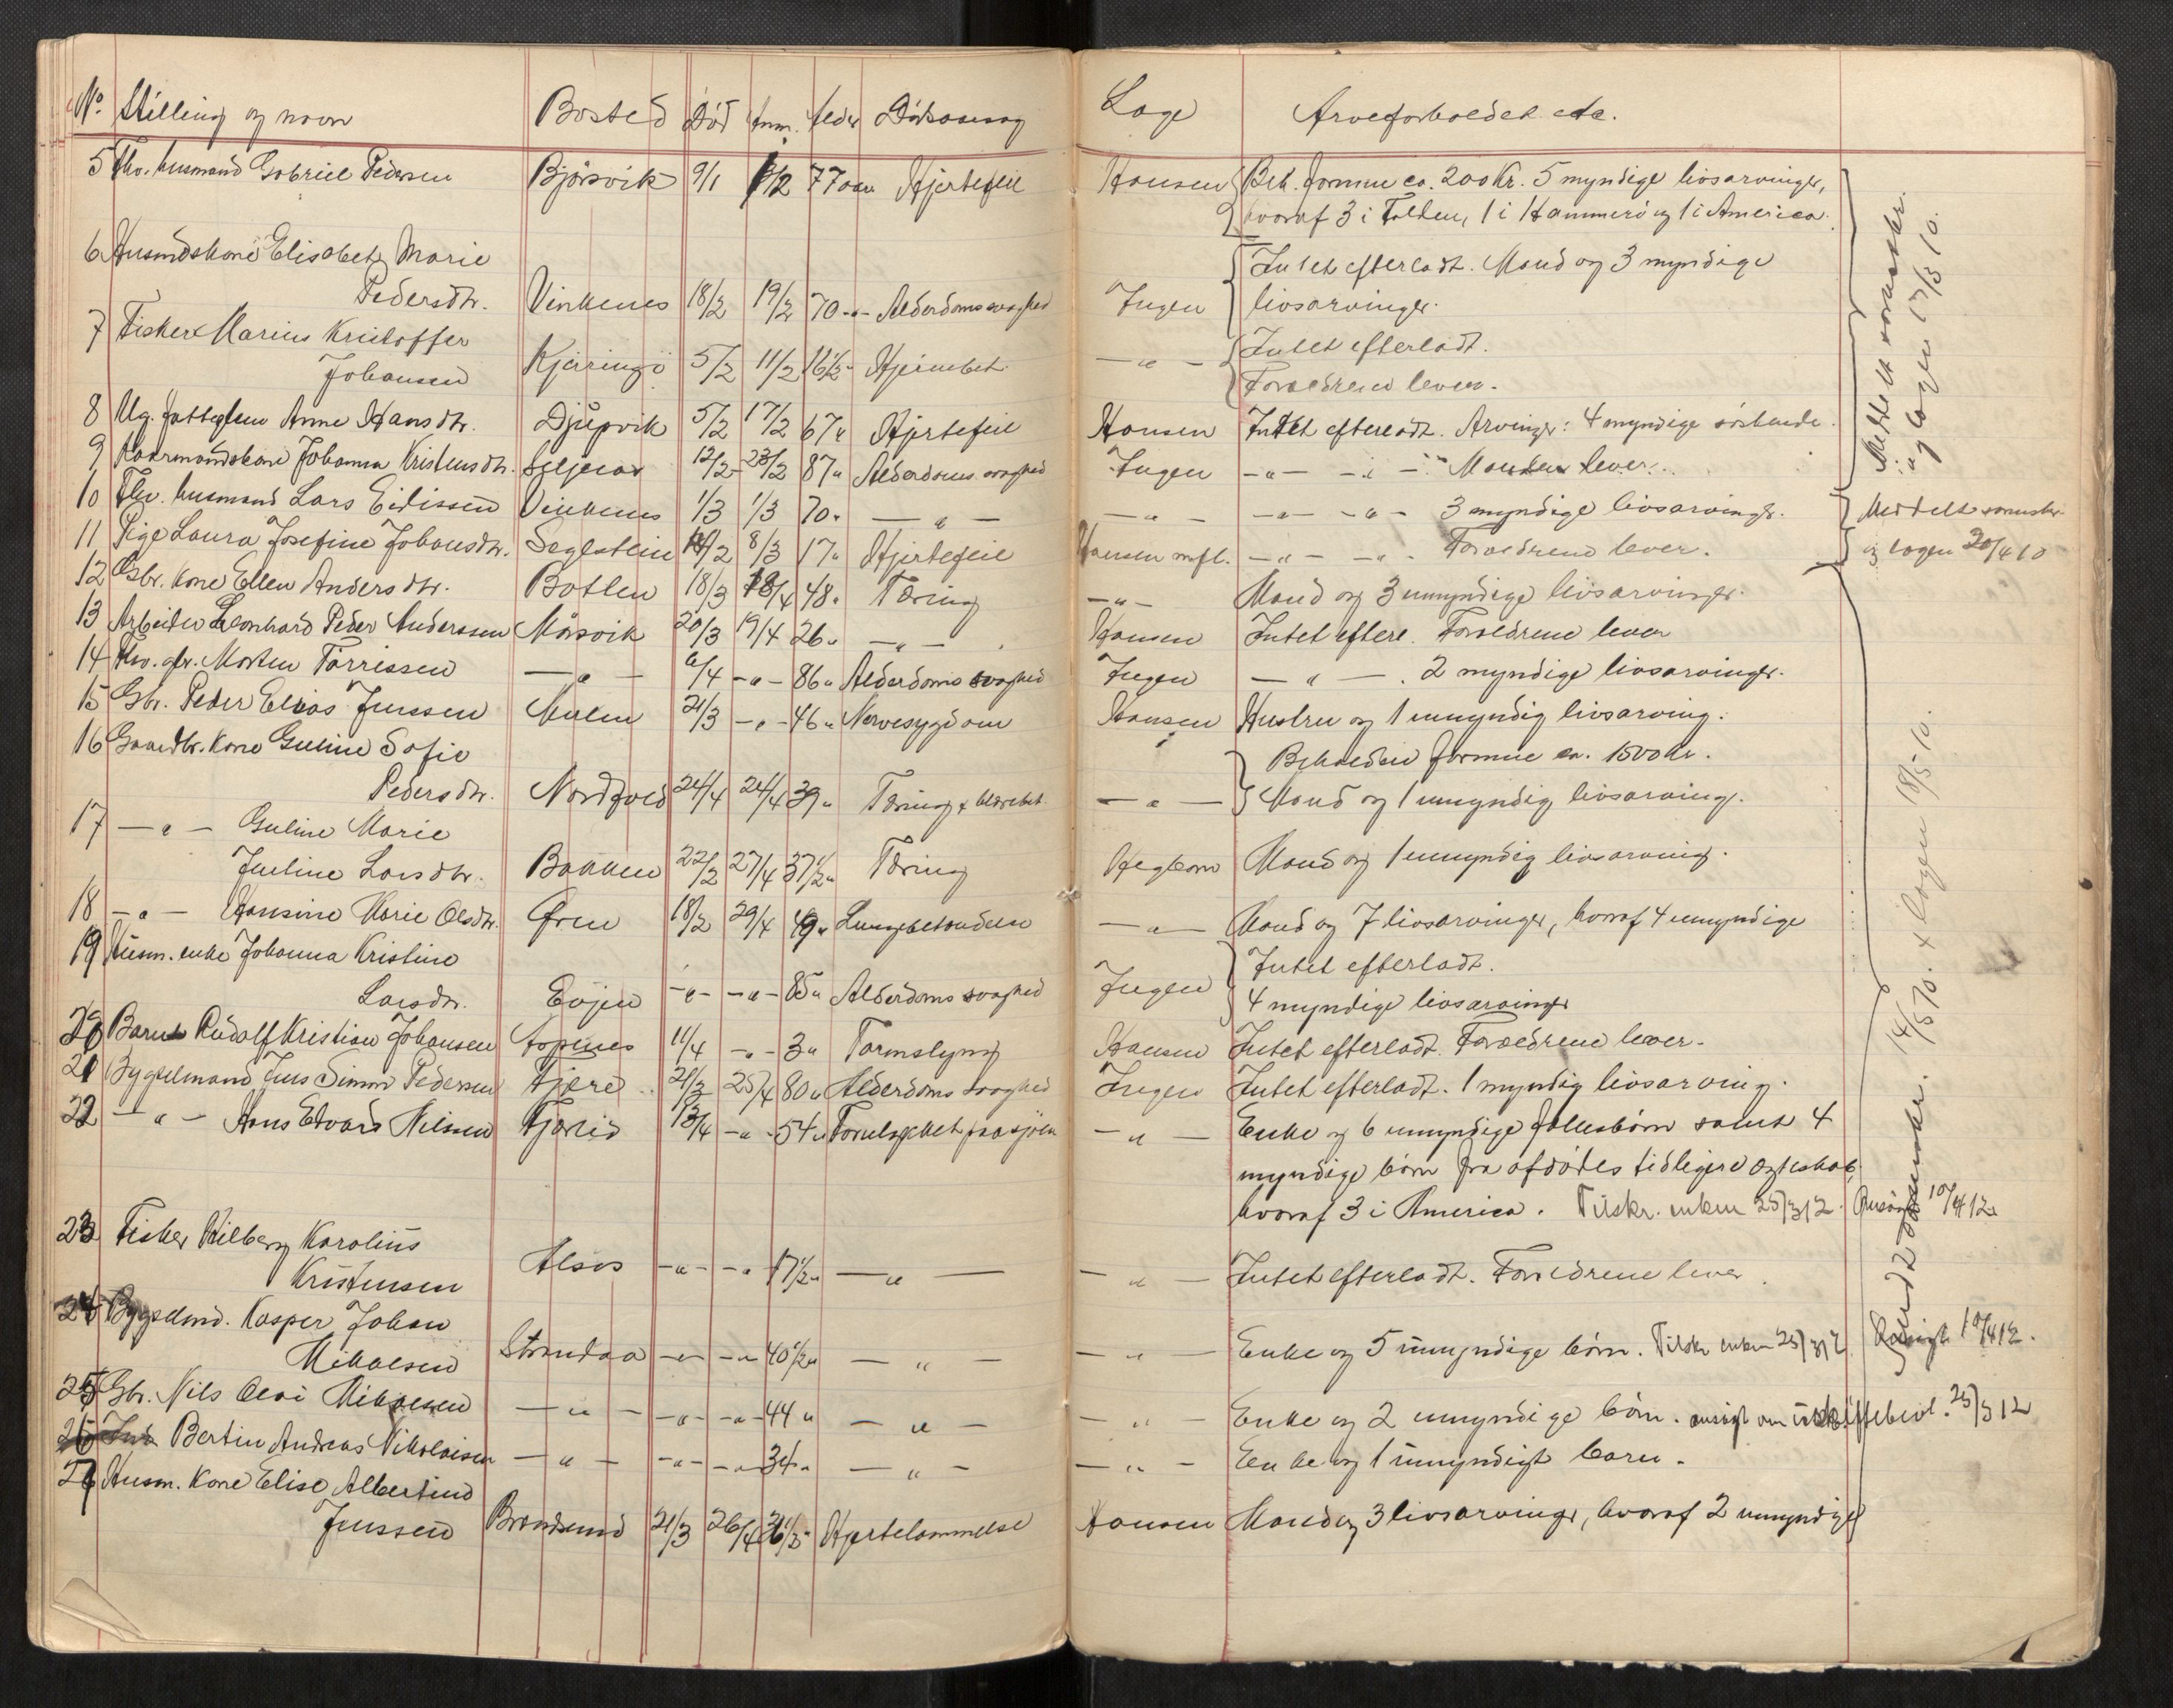 No. Stilling og navn Bosted Død Anm. Alder Dødsaarsag Læge Arveforholdet etc.
5 Fhv. husmand Gabriel Pedersen Bjørsvik 9/1 9/2 77 aar Hjertefeil Hansen Beh. formue ca. 200 Kr. 5 myndige livsarvinger,
hvoraf 3 i Folden, 1 i Hammerø og 1 i America.
6 Husmdskone Elisabeth Marie Intet efterladt. Mand og 3 myndige
Pedersdtr. Vinkenes 18/2 19/2 70 -"- Alderdomssvaghed Ingen livsarvinger.
7 Fisker Marius Kristoffer Intet efterladt.
Johansen Kjæringø 5/2 11/2 16 1/2 " Hjernebet. -"- Forældrene lever.
8 Ug. fattiglem Anne Hansdtr. Djupvik 5/2 17/2 67 " Hjertefeil Hansen Intet efterladt. Arvinger: 4 myndige søskende.
9 Kaarmandskone Johanna Kristensdtr. 12/2 23/2 87 " Alderdomssvaghed Ingen -"- -"- Manden lever.
10 Fhv. husmand Lars Eidissen Vinkenes 1/3 1/3 70 " -"- -"- -"- -"- 3 myndige livsarvinger.
11 Pige Laura Josefine Johansdtr. Seglstein /2 8/3 17 " Hjertefeil Hansen mfl. -"- -"- Forældrene lever.
12 Gbr. kone Ellen Andersdtr. Botten 18/3 18/4 48 " Tæring -"- Mand og 3 umyndige livsarvinger.
13 Arbeider Leonhard Peder Anderssen Mørsvik 20/3 19/4 26 " -"- Hansen Intet efterl. Forældrene lever
14 Fhv. gbr. Morten Tørrissen -"- 6/4 -"- 86 " Alderdomssvaghed Ingen -"- . 2 myndige livsarvinger.
15 Gbr. Peder Elias Jenssen Mulen 21/3 -"- 46 " Nervesygdom Hansen Hustru og 1 umyndig livsarving.
16 Gaardbr. kone Guline Sofie Beholden formue ca. 1500 kr.
Pedersdtr. Nordfold 24/4 24/4 39 " Tæring & blærebet. -"- Mand og 1 umyndig livsarving.
17 -"- Guline Marie
Juline Larsdtr. Bakken 22/2 27/4 37 1/2 " Tæring Hegbom Mand og 1 umyndig livsarving.
18 -"- Hansine Marie Olsdtr. Øren 18/2 29/4 49 " Lungebetændelse -"- Mand og 7 livsarvinger, hvoraf 4 umyndige
19 Husm. enke Johanna Kristine Intet efterladt.
Larsdtr. Evjen -"- -"- 85 " Alderdomssvaghed Ingen 4 myndige livsarvinger
20 Barnet Rudolf Kristian Johansen 11/4 -"- 3 " Tarmslyng Hansen Intet efterladt. Forældrene lever.
21 Bygselmand Jens Simon Pedersen 21/3 25/4 80 " Alderdomssvaghed Ingen Intet efterladt. 1 myndig livsarving.
22 -"- Hans Edvard Nilssen 13/4 -"- 54 " Forulykket paa sjøen -"- Enke og 6 umyndige fællesbørn samt 4
myndige børn fra afdødes tidligere ægteskab,
hvoraf 3 i America. Tilskr. enken 25/3 12. 10/4 12.
23 Fisker Hilberg Karolius
Kristensen Alsos -"- -"- 17 1/2 " -"- -"- Intet efterladt. Forældrene lever.
24 Bygselmd. Kasper Johan
Mikalsen Strandaa -"- -"- 40 1/2 " -"- -"- Enke og 5 umyndige børn. Tilskr. enken 25/3 12 10/4 12.
25 Gbr. Nils Olai Mikalsen -"- -"- -"- 44 " -"- -"- Enke og 2 umyndige børn. ansøgt om uskiftebevl. 25/3 12
26 Bertin Andreas Nikolaisen -"- -"- -"- 34 " -"- -"- Enke og 1 umyndigt barn.
27 Husm. kone Elise Albertine
Jenssen 21/3 26/4 Hjertelammelse Hansen Mand og 3 livsarvinger, hvoraf 2 umyndige
Meddelt sorenskr.
og lægen 17/3 10.
Meddelt sorenskr.
og lægen 20/4 10
Sendt sorenskr. 14/5 10. & lægen 18/5 10.